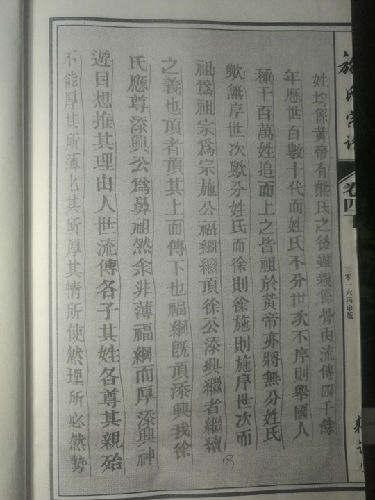 施氏宗譜
卷四
姓均係黃帝有熊氏之後雖親係骨由流傳四千餘
年歷世百數十代而姓氏不分世次不序則舉國人
種千百萬姓追而上之皆祖於黃帝亦將無分姓氏
歟無序世次歟分姓氏而徐則徐施則施序世次而
祖爲祖宗爲宗施公福綱繼頂徐公添興繼者繼續
之義也頂者頂其上而傳下也福綱旣頂添興我徐
氏應尊添興公爲鼻祖然余非薄福綱而厚添興神
遊目想推其理由人世流傳各子其姓各尊其親殆
不能厚其所薄也其所厚其情所使然理所必然勢